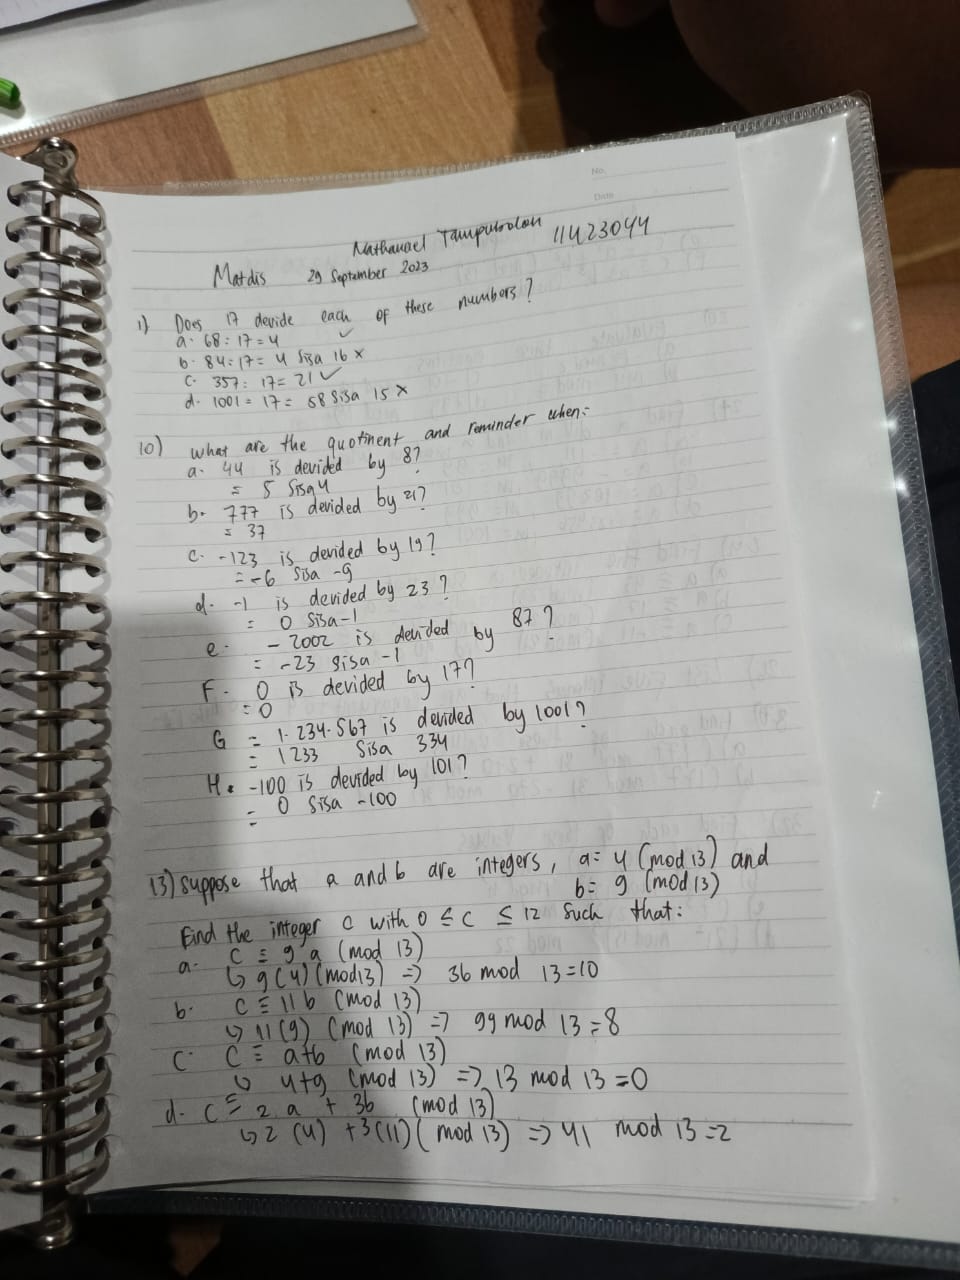 No.
Date
Nathanael Tampubolon 11423044
Matdis 29 September 2023
1) Does 17 devide each of these numbers?
a. 68 : 17 = 4 ✓
b. 84 : 17 = 4 Sisa 16 x
c. 357 : 17 = 21 ✓
d. 1001 = 17 = 58 Sisa 15 x
10) what are the quotinent and reminder when:
a. 44 is devided by 8?
= 5 Sisa 4
b. 777 is devided by 21?
= 37
c. -123 is devided by 19?
= -6 Sisa -9
d. -1 is devided by 23?
= 0 Sisa -1
e. -2002 is devided by 87?
= -23 Sisa -1
F. 0 is devided by 17?
= 0
G = 1.234.567 is devided by 1001?
= 1233 Sisa 334
H. -100 is devided by 101?
= 0 Sisa -100
13) Suppose that a and b are integers, a = 4 (mod 13) and
b = 9 (mod 13)
Find the integer c with 0 ≤ c ≤ 12 such that:
a. C ≡ 9 a (mod 13)
↳ 9(4) (mod 13) => 36 mod 13 = 10
b. C ≡ 11 b (mod 13)
↳ 11(9) (mod 13) => 99 mod 13 = 8
C. C ≡ a+b (mod 13)
↳ 4+9 (mod 13) => 13 mod 13 = 0
d. C ≡ 2 a + 3b (mod 13)
↳ 2 (4) + 3(11) (mod 13) => 41 mod 13 = 2